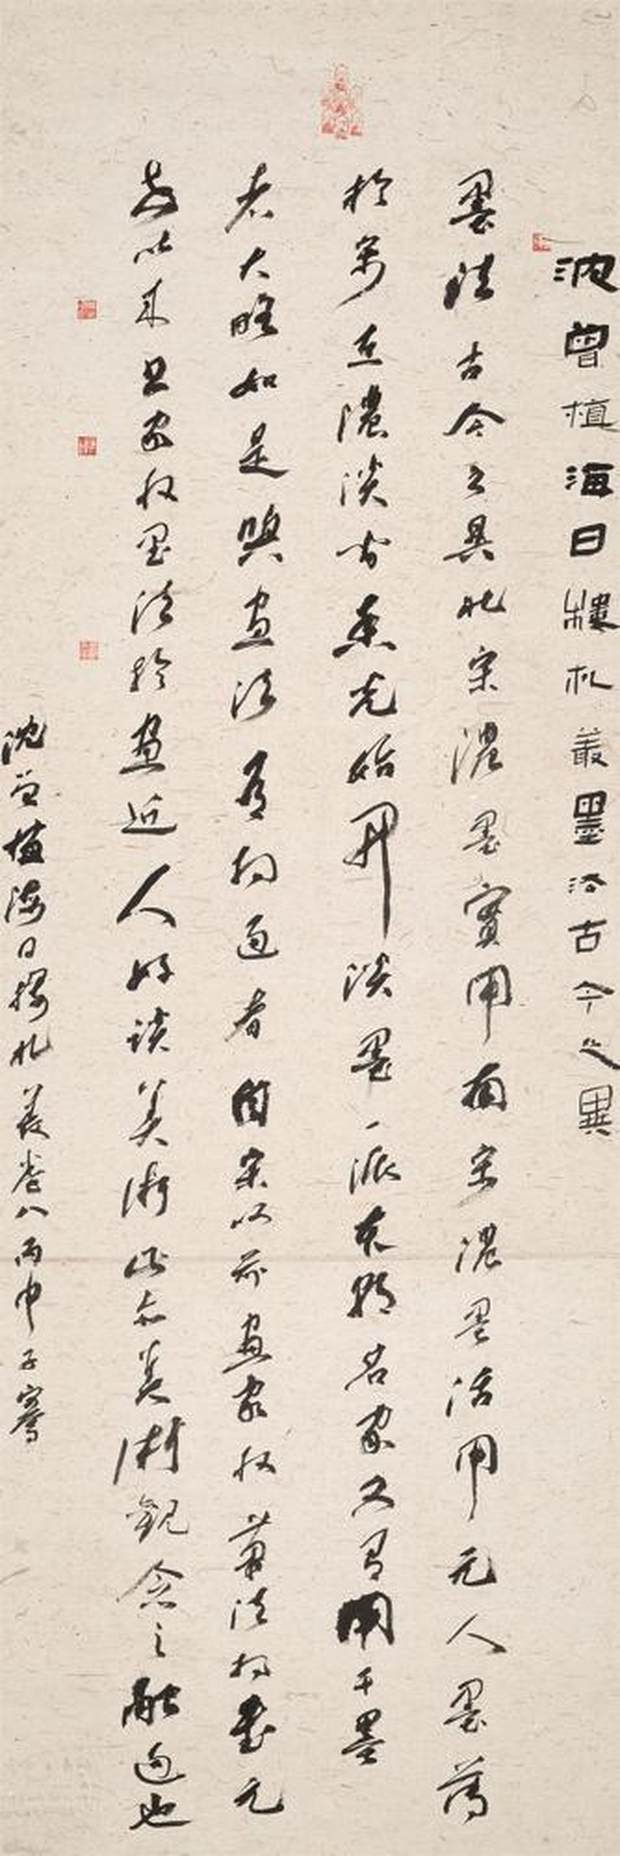 沈曾植海日楼札叢墨法古今之異
墨法古今之異北宋濃墨實用南宋濃墨活用元人墨薄
於宋在濃淡間香光始開淡墨一派本朝名家又有用干墨
者大略如是與畫法有相通者自宋以前畫家取筆法於書元
世以來書家取墨法於畫近人好談美術此亦美術觀念之融通也
沈曾植海日樓札叢卷八丙申子騫